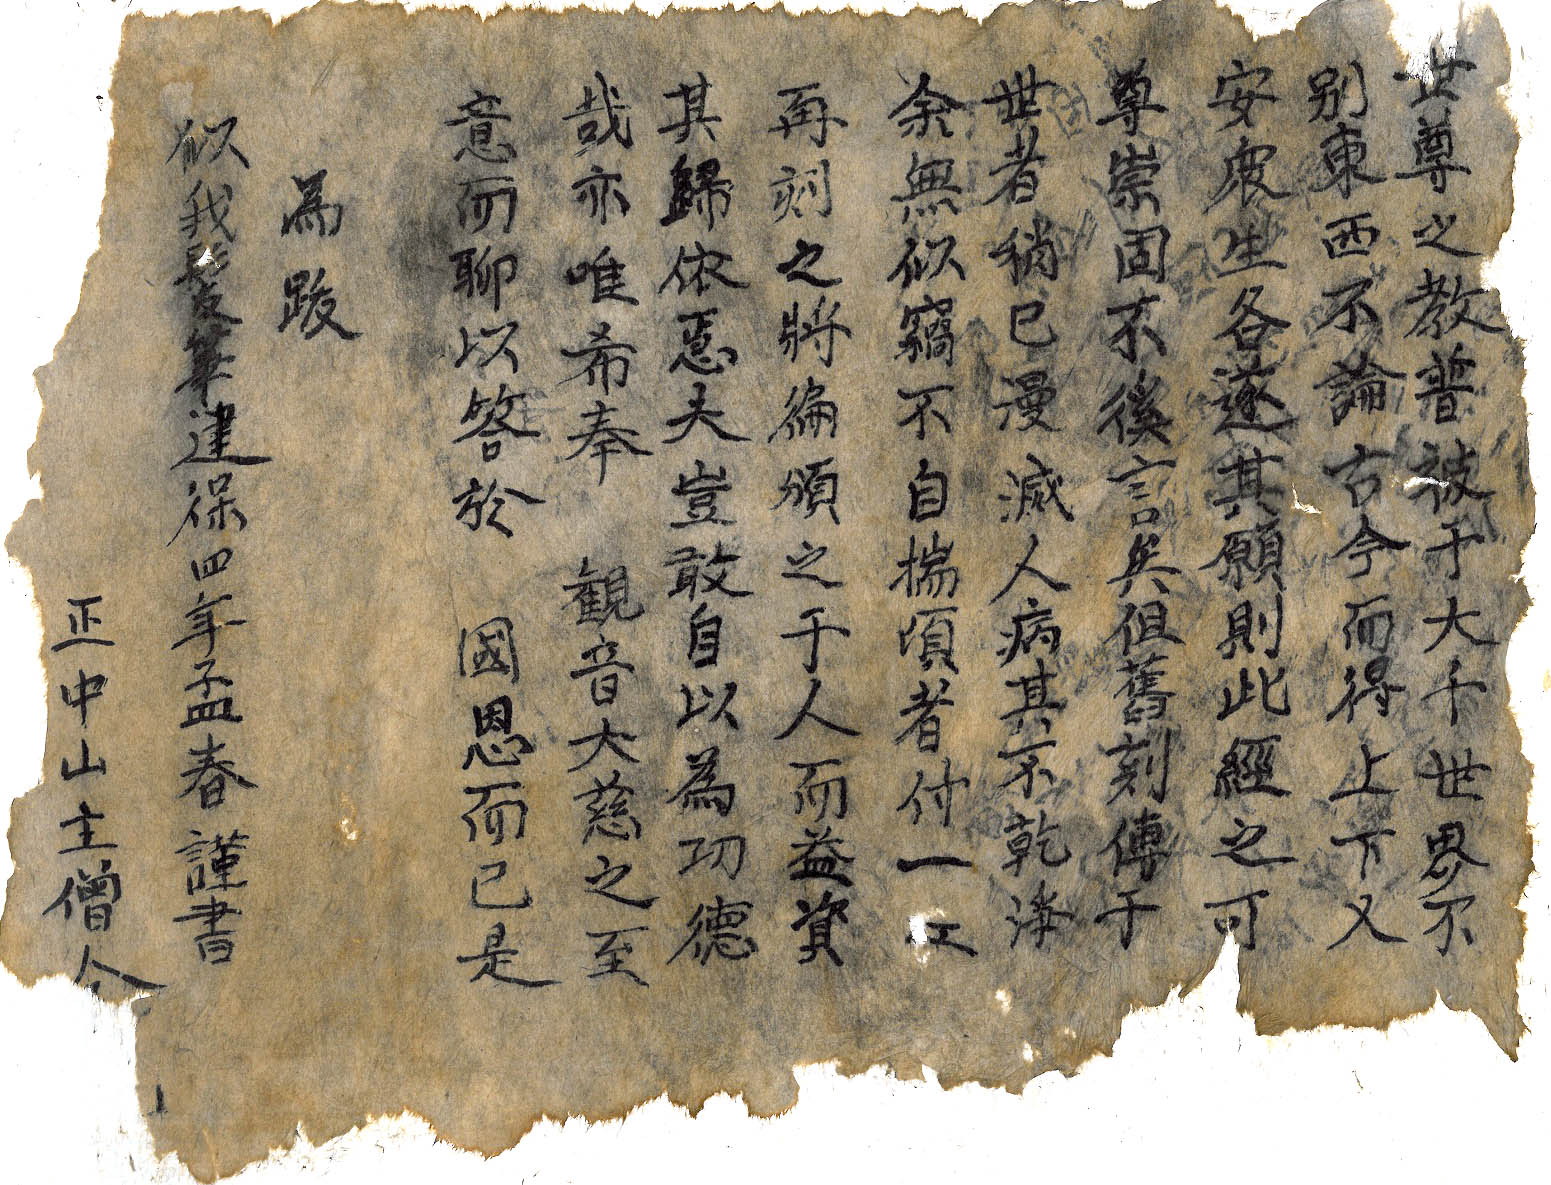 世尊之教普被于大千世界不
别東西不論古今而得上下又
安衆生各遂其願則此經之可
尊崇固不後言矣但舊刻傳于
世者稍已漫滅人病其不乾净
余無似竊不自揣須者付一工
再刻之將徧頒之于人而益資
其歸依惡夫豈敢自以為功德
哉亦唯希奉 觀音大慈之至
意而聊以答於 國恩而已是
為跋
似我 建保四年孟春謹書
正中山主僧